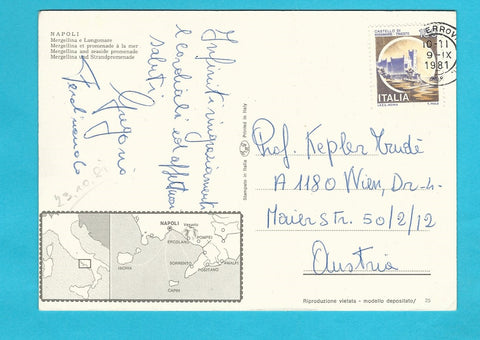 NAPOLI
Mergellina e Lungomare
Mergellina et promenade à la mer
Mergellina and seaside promenade
Mergellina und Strandpromenade
Infiniti ringraziamenti
e cordiali ed affettuosi
saluti
Gregorio
Ferdinando
Stampato in Italia
Printed in Italy
CASTELLO DI
MIRAMARE - TRIESTE
ITALIA
FERROV
10-11
9-IX
1981
Prof. Kepler Trude
A 1180 Wien, Dr.-H.
Maier Str. 50/2/12
Austria
NAPOLI
Vesuvio
ERCOLANO
POMPEI
ISCHIA
SORRENTO
POSITANO
AMALFI
CAPRI
Riproduzione vietata - modello depositato/ 25